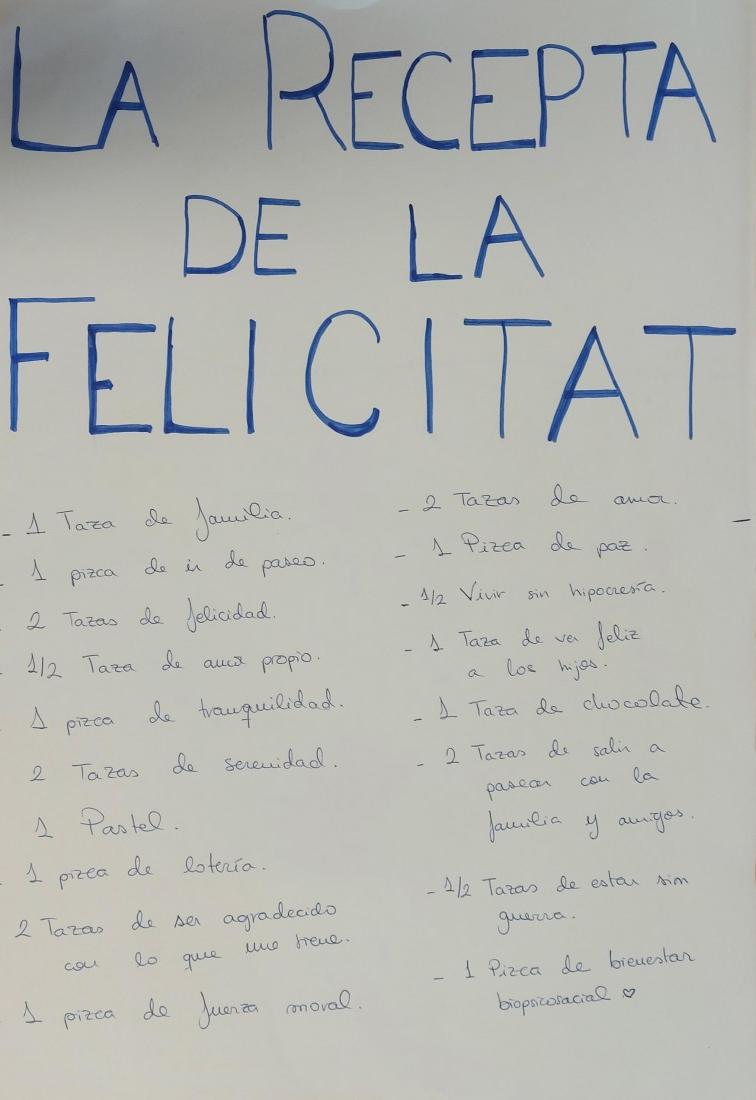 LA RECEPTA
DE LA
FELICITAT
- 1 Taza de familia.
- 1 pizca de ir de paseo.
- 2 Tazas de felicidad.
- 1/2 Taza de amor propio.
- 1 pizca de tranquilidad.
2 Tazas de serenidad.
1 Pastel.
- 1 pizca de lotería.
2 Tazas de ser agradecido
con lo que uno tiene.
- 1 pizca de fuerza moral.
- 2 Tazas de amor.
- 1 Pizca de paz.
- 1/2 Vivir sin hipocresía.
- 1 Taza de ver feliz
a los hijos.
- 1 Taza de chocolate.
- 2 Tazas de salir a
pasear con la
familia y amigos.
- 1/2 Tazas de estar sin
guerra.
- 1 Pizca de bienestar
biopsicosocial ♡